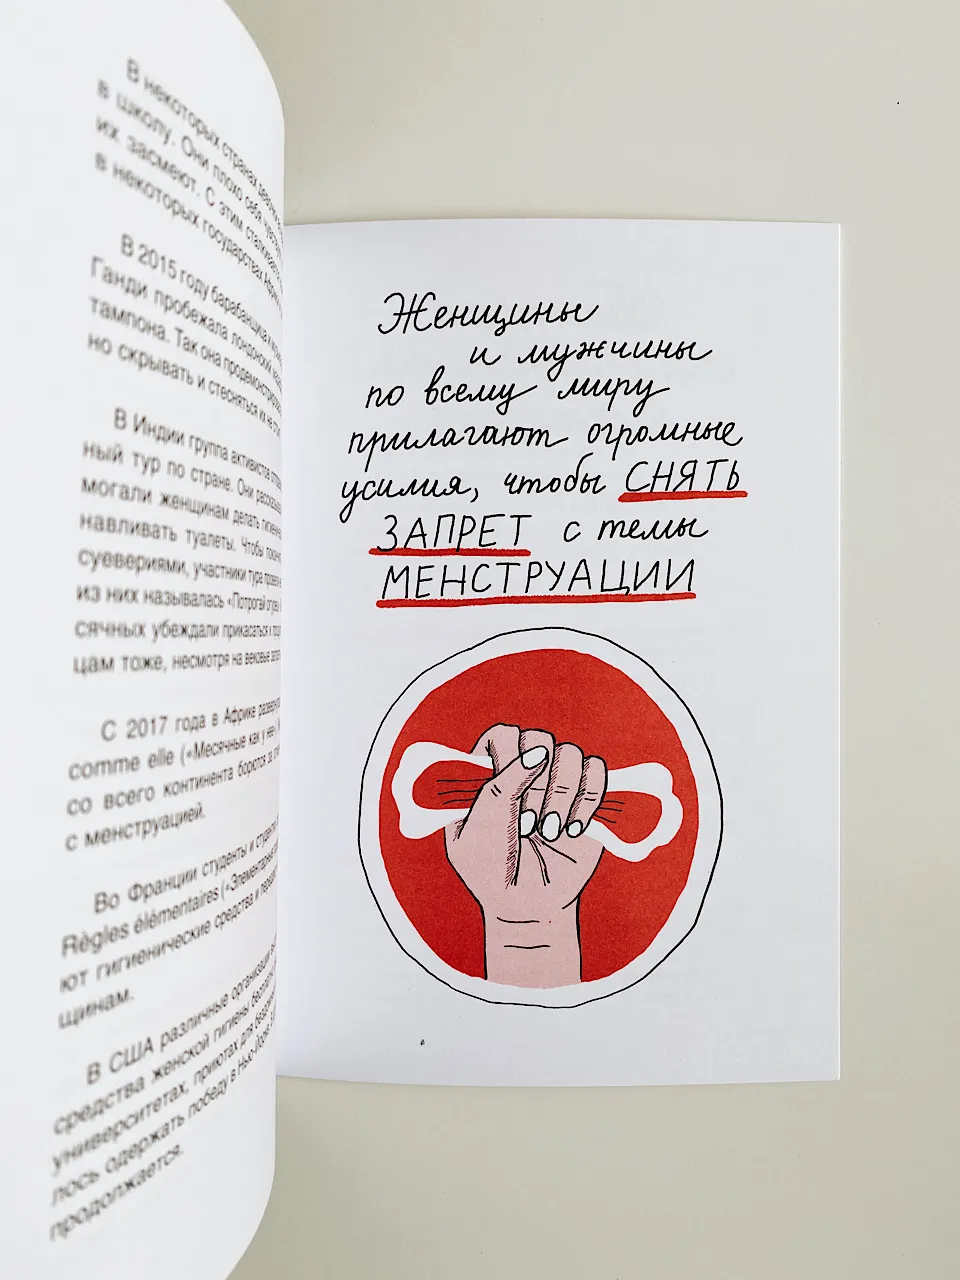 В некоторых странах
в школу. Они плохо себя
их засмеют. С этим
в некоторых государствах
В 2015 году барабанщица и
Ганди пробежала лондонский
тампона. Так она
но скрывать и стесняться их не
В Индии группа активистов
ный тур по стране. Они
могали женщинам делать
навливать туалеты. Чтобы
суевериями, участники тура
из них называлась «Потрогай
сячных убеждали прикасаться к
цам тоже, несмотря на вековые
С 2017 года в Африке
comme elle («Месячные как у неё»)
со всего континента борются за
с менструацией.
Во Франции студенты и
Règles élémentaires («Элементарные
ют гигиенические средства и
щинам.
В США различные организации
средства женской гигиены
университетах, приютах для
лось одержать победу в Нью-Йорке
продолжается.
Женщины
и мужчины
по всему миру
прилагают огромные
усилия, чтобы СНЯТЬ
ЗАПРЕТ с темы
МЕНСТРУАЦИИ